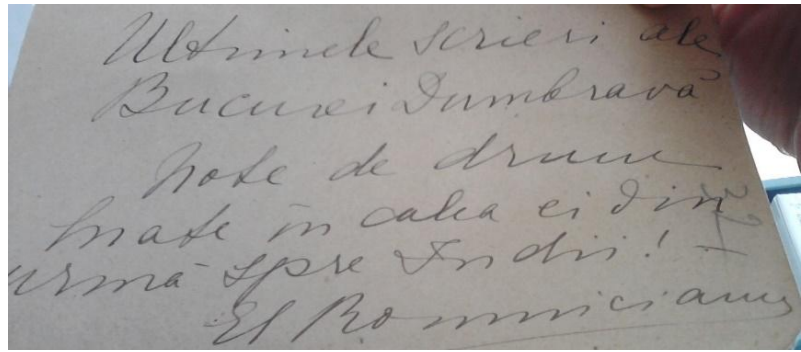 Ultimele scrieri ale
Bucurei Dumbravă
Note de drum
luate în calea ei din
urmă spre Indii!
El Romnicianu